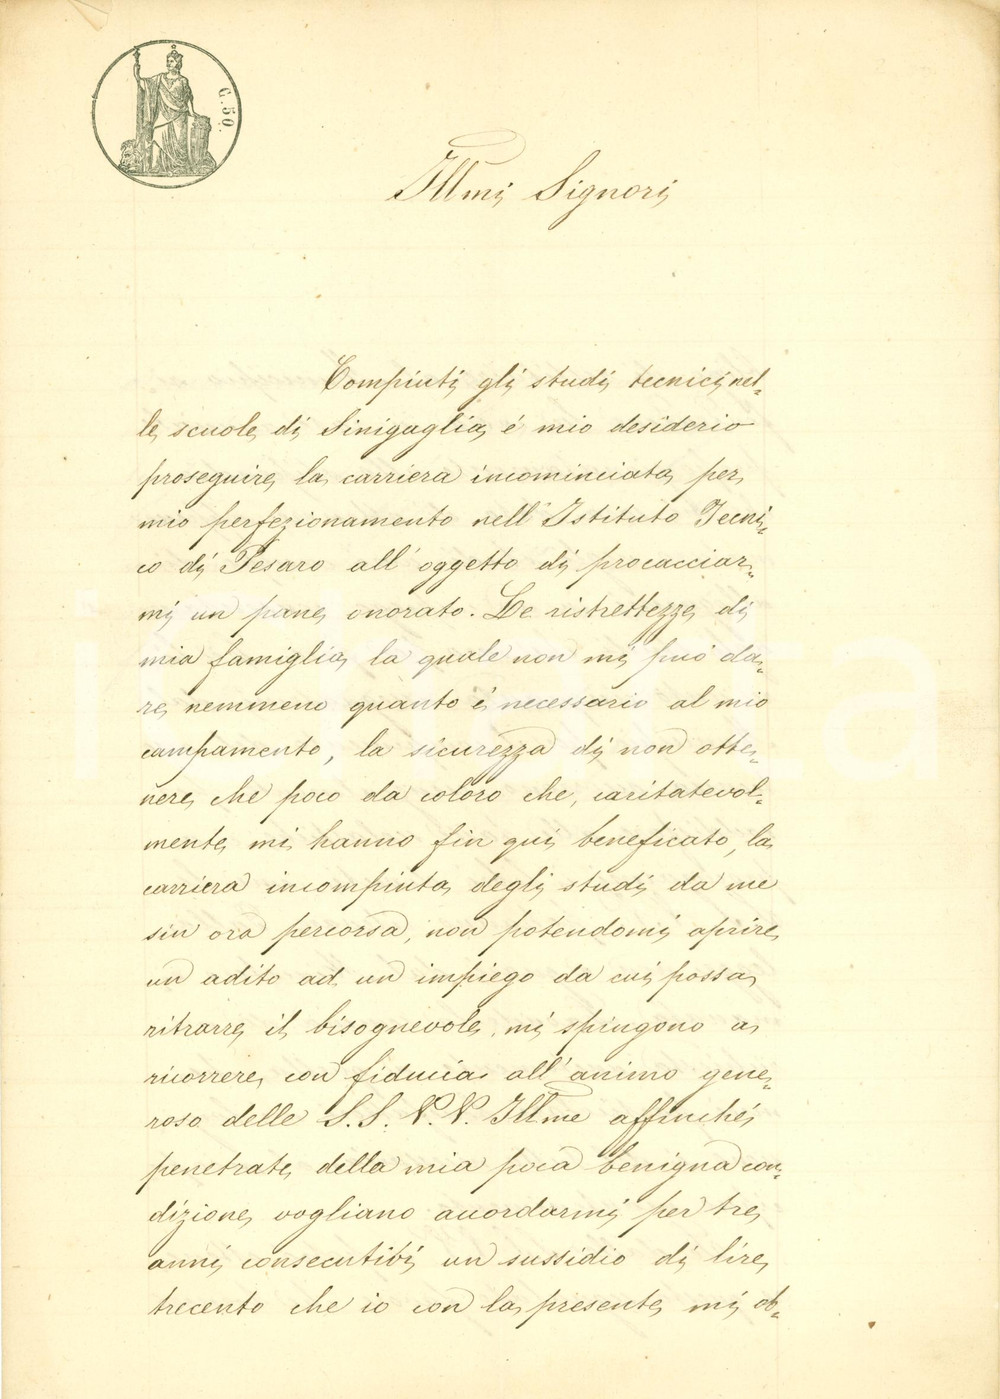 C. 50.
Illmi Signori
Compiuti gli studi tecnici nel=
le scuole di Sinigaglia é mio desiderio
proseguire la carriera incominciata per
mio perfezionamento nell'Istituto Tecni=
co di Pesaro all'oggetto di procacciar=
mi un pane onorato. Le ristrettezze di
mia famiglia la quale non mi può da=
re nemmeno quanto é necessario al mio
campamento, la sicurezza di non otte=
nere che poco da coloro che, caritatevol=
mente mi hanno fin qui beneficato, la
carriera incompiuta degli studi da me
sin ora percorsa, non potendomi aprire
un adito ad un impiego da cui possa
ritrarre il bisognevole, mi spingono a
ricorrere con fiducia all'animo gene=
roso delle S.S. V.V. Illme affinché
penetrate della mia poca benigna con=
dizione vogliano accordarmi per tre
anni consecutivi un sussidio di lire
trecento che io con la presente mi ob=